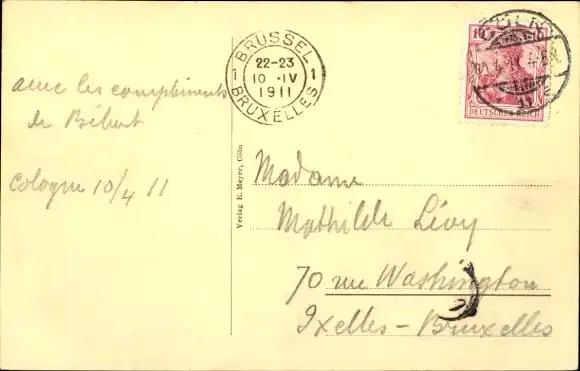 avec les compliments
de Bébert
Cologne 10/4 11
BRÜSSEL
22-23
1 10 IV 1
1911
BRUXELLES
Verlag E. Meyer, Cöln
10
DEUTSCHES REICH
Madame
Mathilde Lévy
70 rue Washington
Ixelles-Bruxelles